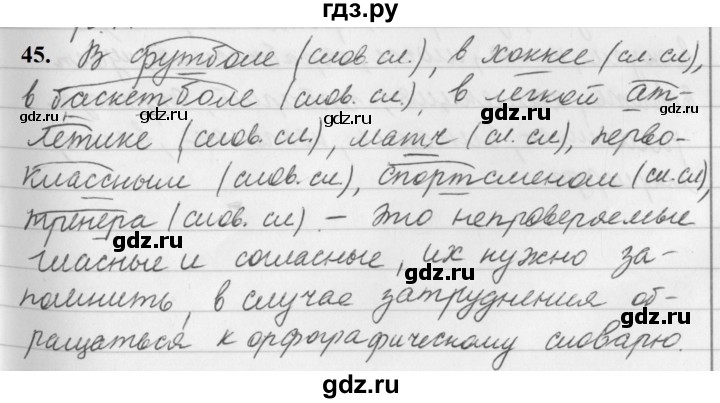 гдз.ру
45. В футболе (слов.сл.), в хоккее (сл.сл),
в баскетболе (слов.сл.), в лёгкой ат-
летике (слов.сл), матч (сл.сл), перво-
классным (слов.сл), спортсменом (сл.сл),
тренера (слов.сл) – это непроверяемые
гласные и согласные, их нужно за-
помнить, в случае затруднения об-
ращаться к орфографическому словарю.
gdz.ru